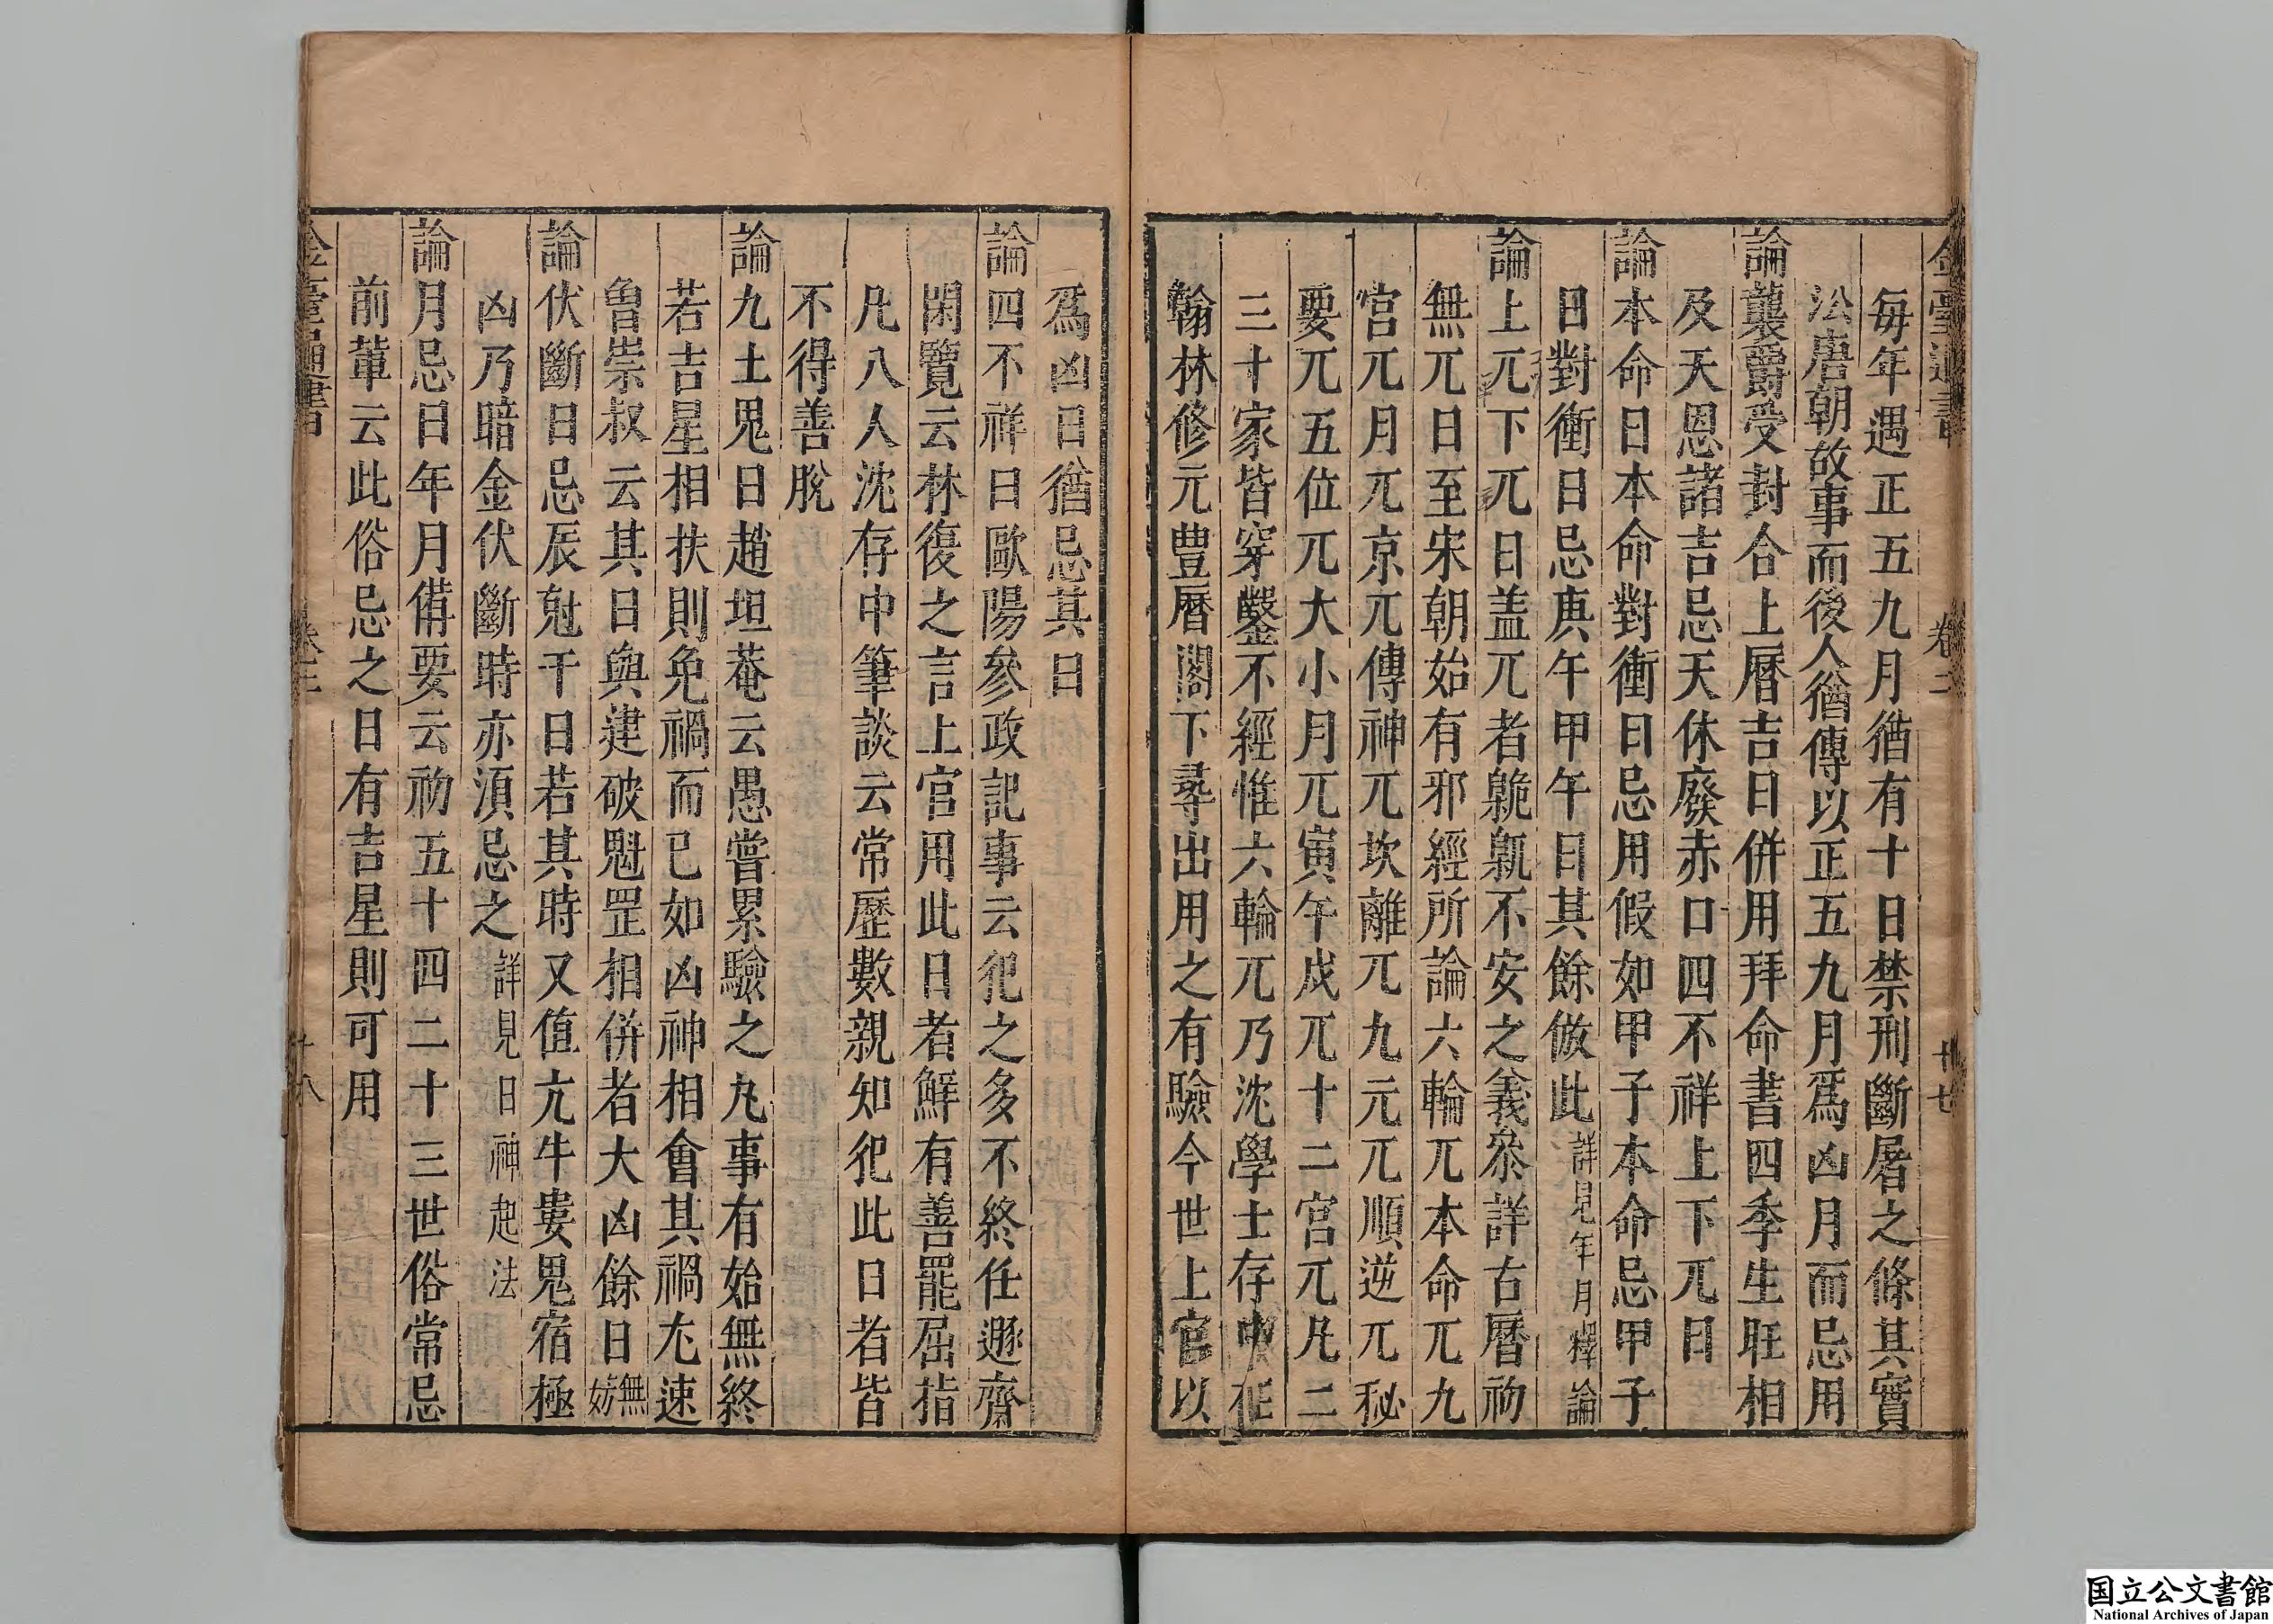 金臺通書 卷二 廿七
每年遇正五九月猶有十日禁刑斷屠之條其實
㳂唐朝故事而後人猶傳以正五九月爲凶月而忌用
論襲爵受封合上曆吉日併用拜命書四季生旺相
及天恩諸吉忌天休廢赤口四不祥上下兀日
論本命日本命對衝日忌用假如甲子本命忌甲子
日對衝日忌庚午甲午日其餘倣此詳見年月擇論
論上兀下兀日盖兀者臲𠨜不安之義叅詳古曆初
無兀日至宋朝始有邪經所論六輪兀本命兀九
宫兀月兀京兀傳神兀坎離兀九元兀順逆兀秘
要兀五位兀大小月兀寅午戌兀十二宫兀凡二
三十家皆穿鑿不經惟六輪兀乃沈學士存中在
翰林修元豊曆閣下尋出用之有驗今世上官以
爲凶日猶忌其日
論四不祥日歐陽參政記事云犯之多不終任遯齋
閑覽云林復之言上官用此日者鮮有善罷屈指
凡八人沈存中筆談云常歷數親知犯此日者皆
不得善脫
論九土鬼日趙坦菴云愚嘗累驗之凡事有始無終
若吉星相扶則免禍而已如凶神相會其禍尤速
魯崇叔云其日與建破魁罡相併者大凶餘日無妨
論伏斷日忌辰尅干日若其時又值亢牛婁鬼宿極
凶乃暗金伏斷時亦湏忌之詳見日神起法
論月忌日年月備要云初五十四二十三世俗常忌
前輩云此俗忌之日有吉星則可用
金臺通書 卷二 廿八
国立公文書館
National Archives of Japan